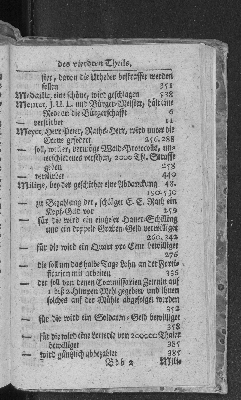 des vierdten Theils.
ster, davon die Urheber bestraffet werden
sollen 251
Medaille, eine schöne, wird geschlagen 528
Mentzer, J. U. L. und Bürger-Meister, hält eine
Rede an die Bürgerschafft 6
— verstirbet 11
Meyer, Herr Peter, Raths-Herr, wird unter die
Cives gefodert 256. 288
— soll, wegen, verübter
verschiedenes versehen, 2000 Thl. Straffe
geben 258
— verstirbet 440
Militz, bey der geschiehet eine Abdanckung 48.
190. 530
— zu Bezahlung der, schläget E. E. Rath ein
Kopf-Geld vor 259
— für die wird ein einzeler Hauer-Schilling
und ein doppelt Graben-Geld verwilliget
260. 342
— für die wird ein Quart pro Cent bewilliget
276
— die soll um das halbe Tage-Lohn an der Forti-
fication mit arbeiten 336
— der soll von denen Commissarien Zettuln auf
1 biß 2 Himpten Mehl gegeben, und ihnen
solches auf der Mühle abgefolget werden
352
— für die wird ein Soldaten-Geld bewilliget
358
— für die wird eine Lotterie von 200000 Thaler
bewilliget 385
— wird gäntzlich abbezahlet 385
B b b 2 Mille